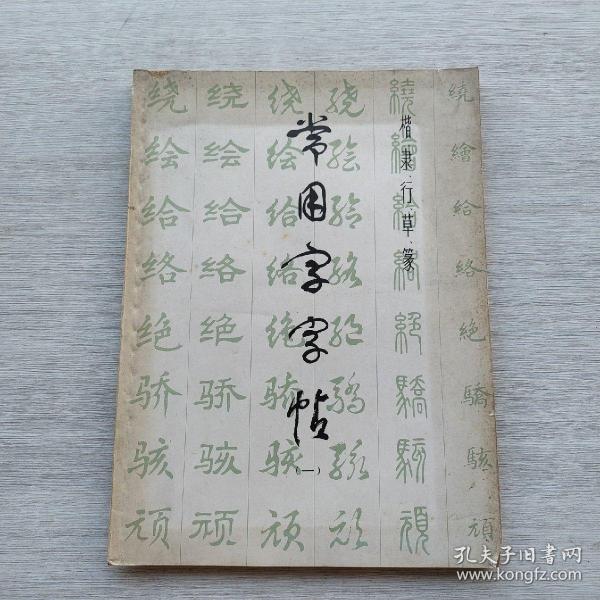 常用字字帖
(一)
楷、隶、行、草、篆
绕 绕 绕 绕 繞 繞
绘 绘 绘 绘 繪 繪
给 给 给 给 給 給
络 络 络 络 絡 絡
绝 绝 绝 绝 絕 絕
骄 骄 骄 驕 驕 驕
骇 骇 骇 骇 駭 駭
顽 顽 顽 顽 頑 頑
孔夫子旧书网
www.kongfz.com